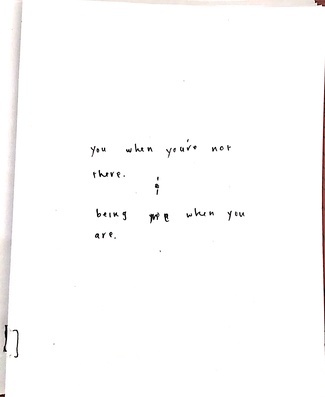 you when you're not
there.
&
being me when you
are.